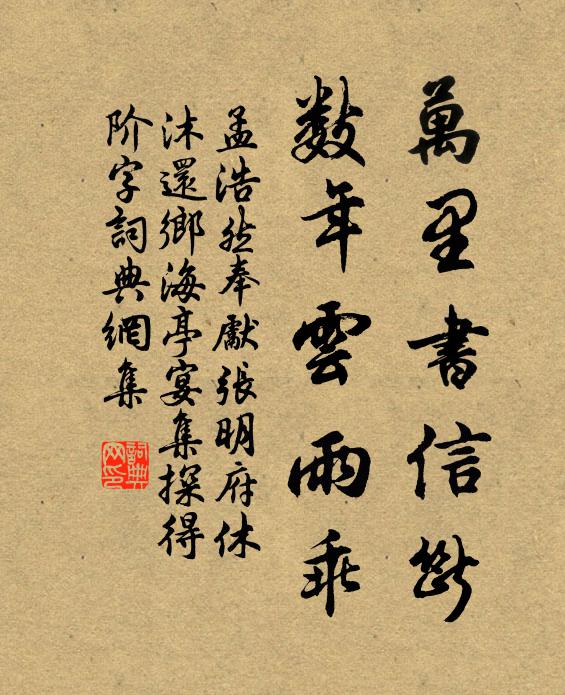 萬里書信斷
數年雲雨乖
孟浩然奉獻張明府休
沐還鄉海亭宴集探得
阶字詞典網集
詞典
网印